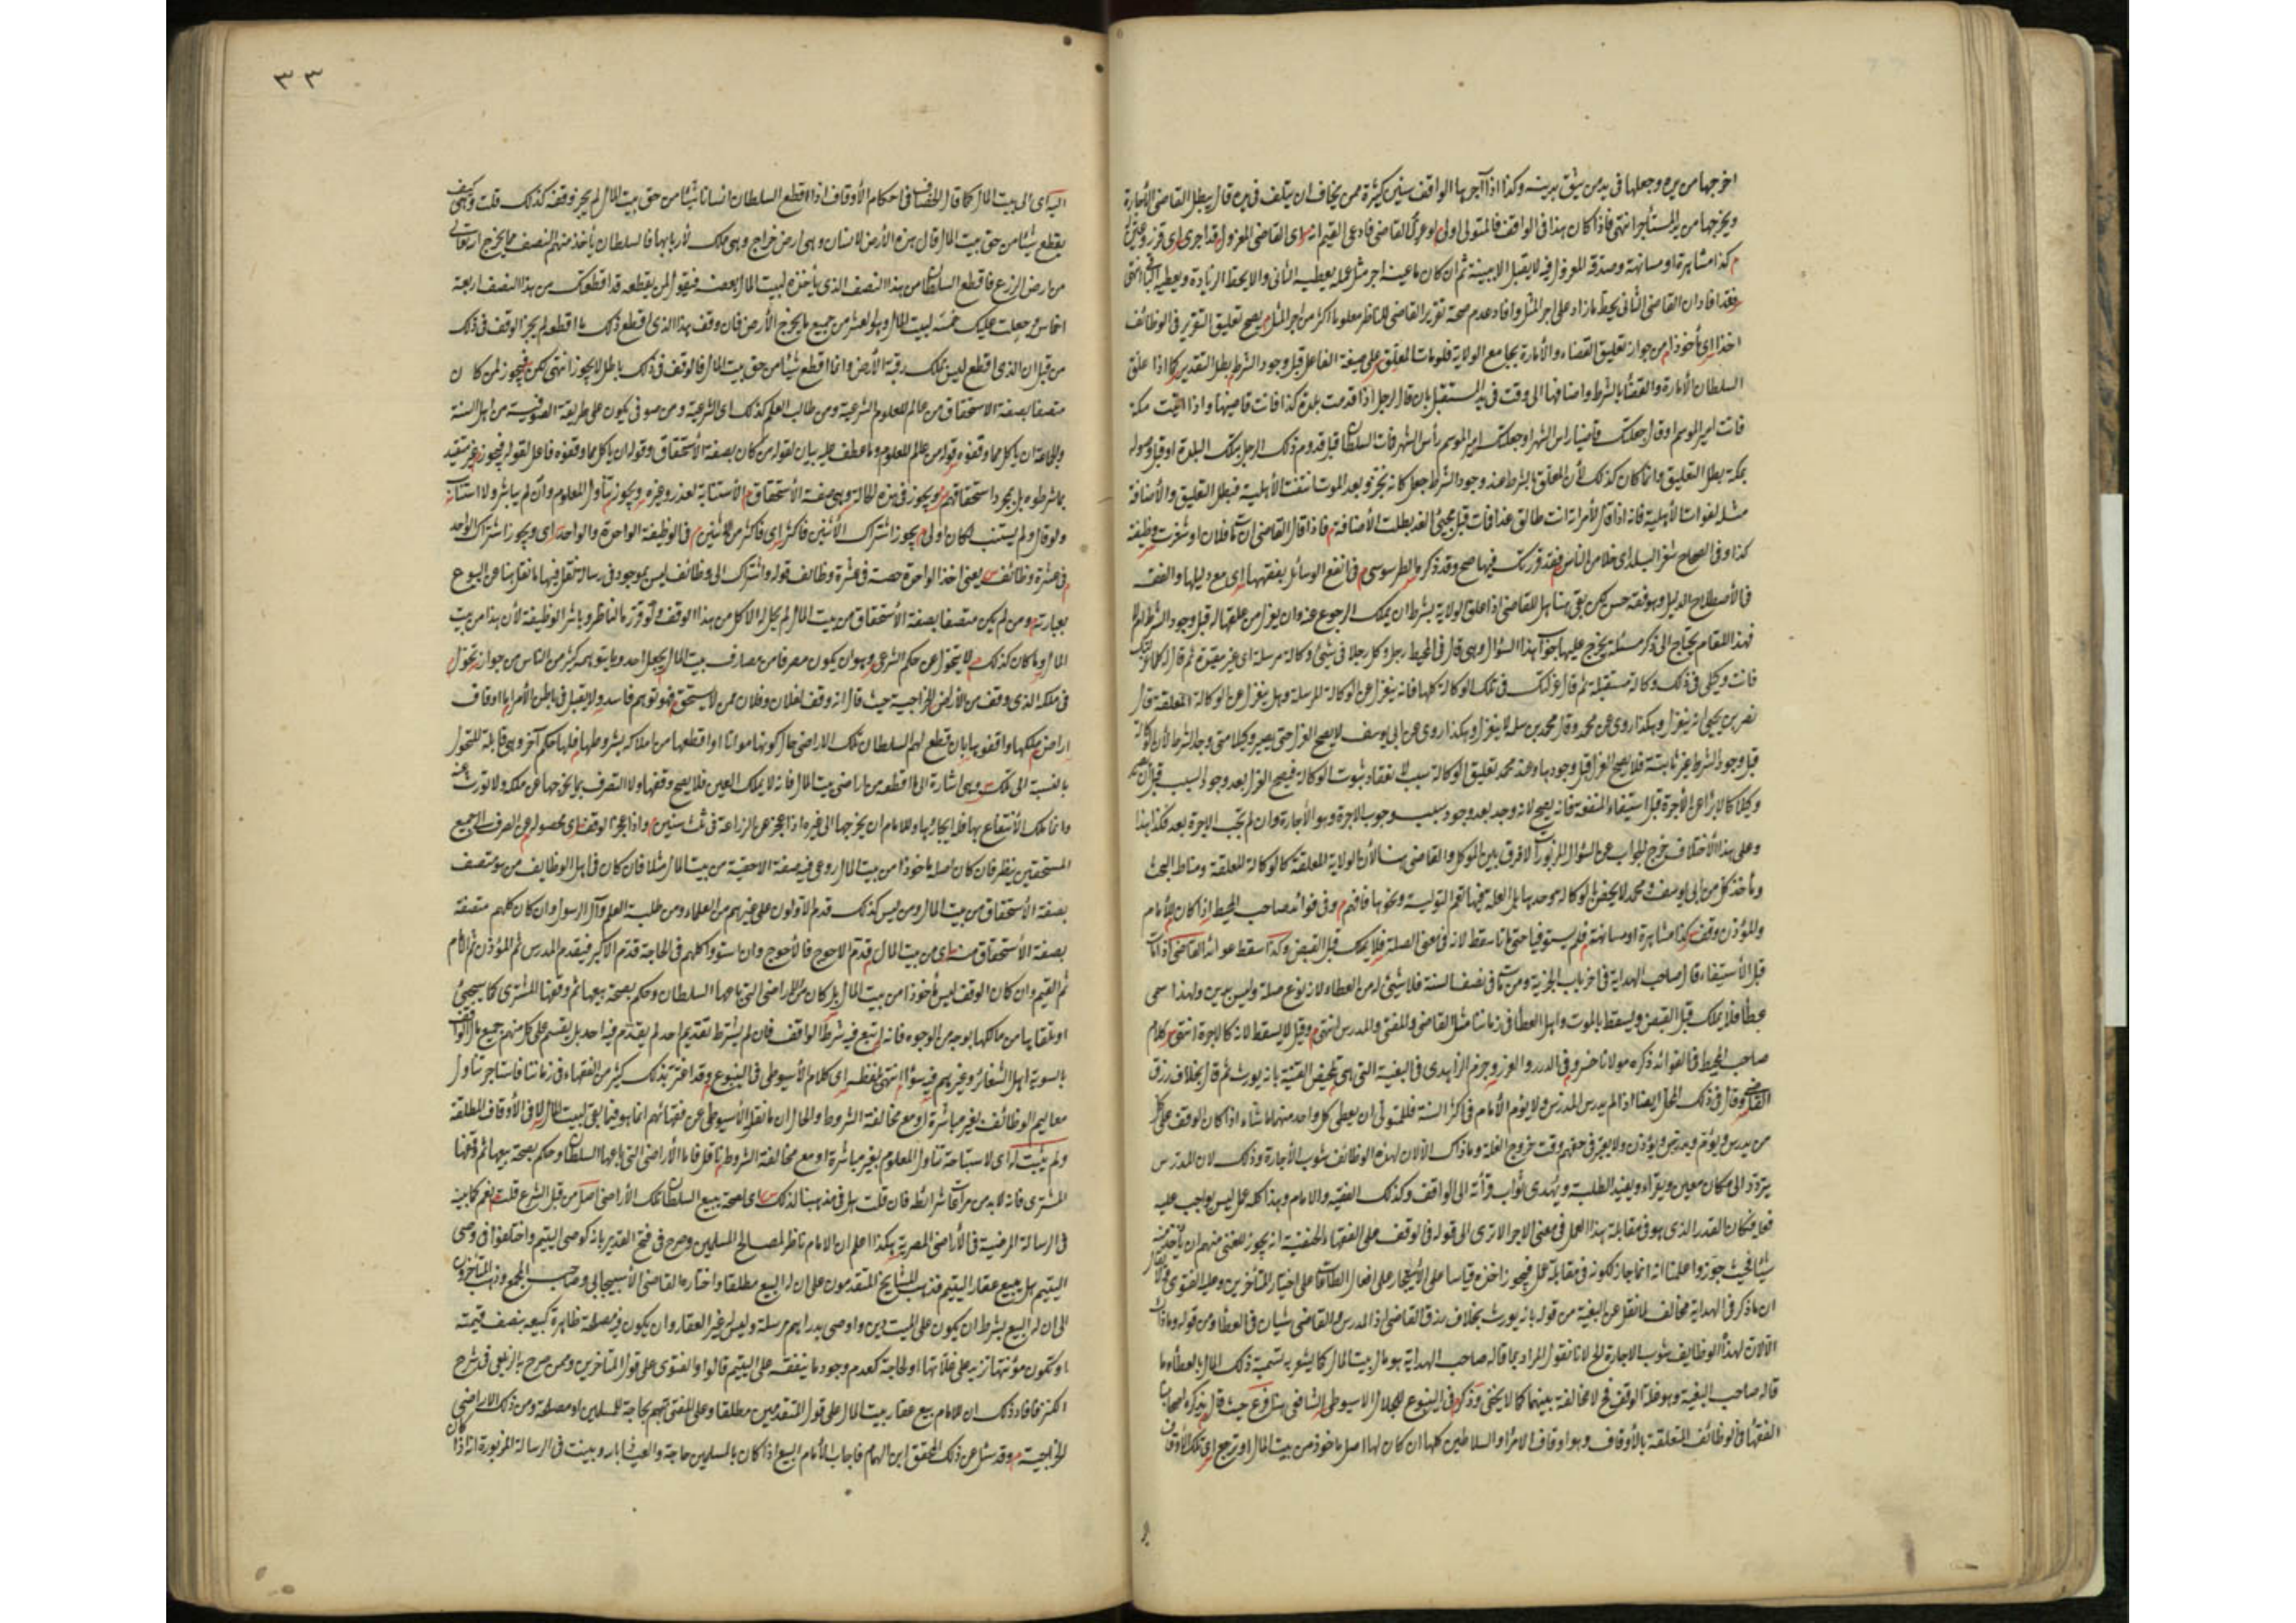 اخرجها من يده وجعلها في يد من يثق بدينه وكذا اذا آجرها الواقف سنين كثيرة ممن يخاف ان يتلف في يده قال يبطل القاضي الأجارة
ويخرجها من يد المستأجر انتهى فاذا كان هذا في الواقف فالمتولي اولى لو عزل القاضي فادعى القيم انه اي القاضي المعزول قد اجرى
كذا مشاهرة او مسانهة وصدقه المعزول فيه لا يقبل الا ببينة ثم ان كان ما عينه اجر مثل عمله يعطيه الثاني والا يحط الزيادة ويعطيه الباقي انتهى
فقد افاد ان القاضي الثاني يحط ما زاد على اجر المثل وافاد عدم صحة تقرير القاضي للناظر معلوما اكثر من اجر المثل يصح تعليق التقرير في الوظائف
اخذا اي مأخوذا من جواز تعليق القضاء والأمارة بجامع الولاية فلو مات المعلق على صيغة الفاعل قبل وجود الشرط بطل التقدير كما اذا علق
السلطان الأمارة والقضاء بالشرط واضافهما الى وقت في المستقبل بان قال لرجل اذا قدمت بلدة كذا فانت قاضيها واذا اتيت مكة
فانت امير الموسم او قال جعلتك قاضيا رأس الشهر او جعلتك امير الموسم رأس الشهر فمات السلطان قبل قدوم ذلك الرجل تلك البلدة او قبل وصوله
بمكة بطل التعليق وانما كان كذلك لأن المعلق بالشرط عند وجود الشرط جعل كانه نجز وبعد الموت انتفت الأهلية فبطل التعليق والأضافة
مثله لفوات الأهلية فانه اذا قال لأمرأته انت طالق غدا فمات قبل مجيئ الغد بطلت الأضافة فاذا قال القاضي ان مات فلان او شغرت وظيفة
كذا وفي الصحاح شغر البلد اي خلا من الناس فقد قررتك فيها صح وقد ذكره الطرسوسي في انفع الوسائل بفقهها اي مع دليلها والفقه
في الأصطلاح الدليل وهو فقه حسن لكن بقي هنا هل للقاضي اذا علق الولاية بشرط ان يملك الرجوع عنه وان يعزل من علقها له قبل وجود الشرط ام لا
فهذا المقام يحتاج الى ذكر مسئلة يخرج عليها جواب هذا السؤال وهي قال في المحيط رجل وكل رجلا في شيئ وكالة مرسلة اي غير مقيدة ثم قال له كلما عزلتك
فانت وكيلي في ذلك وكالة مستقبلة ثم قال عزلتك في تلك الوكالة كلها فانه ينعزل عن الوكالة المرسلة وهل ينعزل عن الوكالة المعلقة قال
نصر بن يحيى انه ينعزل وهكذا روى عن محمد وقال محمد بن سلمة لا ينعزل وهكذا روى عن ابي يوسف لا يصح العزل حتى يصير وكيلا متى وجد الشرط لأن الوكالة
قبل وجود الشرط غير ثابتة فلا يصح العزل قبل وجودها وعند محمد تعليق الوكالة سبب لانعقاد ثبوت الوكالة فيصح العزل بعد وجود السبب قبل ان يصير
وكيلا كالابراء عن الأجرة قبل استيفاء المنفعة فانه يصح لانه وجد بعد وجود سبب وجوب الاجرة وهو الأجارة وان لم تجب الاجرة بعد فكذا هذا
وعلى هذا الأختلاف خرج الجواب عن السؤال المزبور اذ لا فرق بين الموكل والقاضي هنا لأن الولاية المعلقة كالوكالة المعلقة ومناط البحث
ومأخذ كل من ابي يوسف ومحمد لا يخص الوكالة وحدها بل العلة فيها تعم التولية ونحوها فافهم وفي فوائد صاحب المحيط اذا كان للأمام
والمؤذن وقف كذا مشاهرة او مسانهة فلم يستوفيا حتى ماتا سقط لانه في معنى الصلة فلا يملك قبل القبض وكذا سقط عوائد القاضي اذا مات
قبل الأستيفاء قال صاحب الهداية في اخر باب الجزية ومن مات في نصف السنة فلا شيئ له من العطاء لانه نوع صلة وليس بدين ولهذا سمى
عطاء فلا يملك قبل القبض ويسقط بالموت واهل العطاء في زماننا مثل القاضي والمفتي والمدرس انتهى وقيل لا يسقط لانه كالاجرة انتهى كلام
صاحب المحيط في الفوائد ذكره مولانا خسرو في الدرر والغرر وجزم الزاهدي في البغية التي هي تلخيص القنية بانه يورث ثم قال بخلاف رزق
القاضي وقال في ذلك المحل ايضا اذا لم يدرس المدرس ولا يؤم الأمام في اكثر السنة فللمتولي ان يعطي كل واحد منهما ما شاء اذا كان الوقف على كل
من يدرس ويؤم ويدرس ويؤذن ولا يعتبر في حقهم وقت خروج الغلة وما ذاك الا لان لهذه الوظائف شوب الأجارة وذلك لان المدرس
يتردد الى مكان معين ويقرأه ويفيد الطلبة ويهدى ثواب قرأته الى الواقف وكذلك الفقيه والامام وهذا كله عمل ليس بواجب عليه
فعلمنا فكان القدر الذي هو في مقابلة هذا العمل في معنى الاجر الا ترى الى قوله في الوقف على الفقهاء الحنفية انه يجوز للغني منهم ان يأخذ منه
شيئا فحيث جوزوا علمنا انه انما جاز لكونه في مقابلة عمل فيجوز اخذه قياسا على الأستئجار على افعال الطاعات على اختيار المتأخرين وعليه الفتوى
ان ما ذكر في الهداية مخالف لما نقل عن البغية من قوله بانه يورث بخلاف رزق القاضي اذ المدرس والقاضي شيئان في العطاء ومن قوله وما ذاك
الا لان لهذه الوظايف شوب الاجارة الخ لانا نقول المراد بما قاله صاحب الهداية هو مال بيت المال كما يشعر به تسمية ذلك المال بالعطاء وما
قاله صاحب البغية وهو غلة الوقف فح لا مخالفة بينهما كما لا يخفى وذكر في الينبوع للجلال الاسيوطي الشافعي هنا فرع حيث قال يذكره اصحابنا
الفقهاء في الوظائف المتعلقة بالأوقاف وهو اوقاف الامراء والسلاطين كلها ان كان لها اصل مأخوذ من بيت المال او ترجع اي تلك الأوقاف
٣٣
اليه اي الى بيت المال كما قال الخصاف في احكام الأوقاف اذا اقطع السلطان انسانا شيئا من حق بيت المال لم يجز وقفه كذلك قلت وكيف
يقطع شيئا من حق بيت المال قال هذه الأرض لانسان وهي ارض خراج وهي ملك لأربابها فالسلطان يأخذ منهم النصف مما يخرج
من ارض الزرع فاقطع السلطان من هذا النصف الذي يأخذه لبيت المال بعضه فيقول لمن يقطعه قد اقطعتك من هذا النصف اربعة
اخماس وجعلت عليك خمسه لبيت المال وهو العشر من جميع ما يخرج الأرض فان وقف هذا الذي اقطع ذلك ما اقطع لم يجز الوقف في ذلك
من قبل ان الذي اقطع ليس يملك رقبة الأرض وانما اقطع شيئا من حق بيت المال فالوقف في ذلك باطل لا يجوز انتهى لكن فيجوز لمن كان
متصفا بصفة الاستحقاق من عالم للعلوم الشرعية ومن طالب العلم كذلك اي الشرعية ومن صوفي يكون على طريقة الصوفية من اهل السنة
والجماعة ان يأكل مما وقفوه قوله من عالم للعلوم وما عطف عليه بيان لقوله من كان بصفة الأستحقاق وقوله ان يأكل مما وقفوه فاعل لقوله فيجوز غير متقيد
بما شرطوه بل بمجرد استحقاقهم ويجوز في هذه الحالة وهي صفة الأستحقاق الأستنابة لعذر وغيره ويجوز تناول المعلوم وان لم يباشر ولا استناب
ولو قال ولم يستنب لكان اولى ويجوز اشتراك الأثنين فاكثر اي فاكثر من الاثنين في الوظيفة الواحدة والواحد اي ويجوز اشتراك الواحد
في عشرة وظائف يعني اخذ الواحد حصة في عشرة وظائف قوله واشتراك الى وظائف ليس بموجود في رسالة نقل فيها ما نقل هنا عن الينبوع
بعبارته ومن لم يكن متصفا بصفة الأستحقاق من بيت المال لم يحل له الاكل من هذا الوقف ولو قرره الناظر وباشر الوظيفة لأن هذا من بيت
المال وما كان كذلك لا يتحول عن حكم الشرعي وهو ان يكون مصرفا من مصارف بيت المال بجعل احد وما يتوهمه كثير من الناس من جواز تحول
في ملكه الذي وقف من الأراضي الخراجية حيث قال انه وقف لفلان وفلان ممن لا يستحق فهو توهم فاسد ولا يقبل في باطن الأمر اما اوقاف
اراض ملكها واقفوها بان قطع لهم السلطان تلك الاراضي حال كونها مواتا او اقطعها من املاكه بشروطها فلها حكم آخر وهي قابلة للتحول
بالنسبة الى تلك وهي اشارة الى ما اقطعه من اراضي بيت المال فانه لا يملك العين فلا يصح وقفها ولا التصرف بما يخرجها عن ملكه ولا تورث عنه
وانما ملك الأنتفاع بها فله ايجارها وللامام ان يخرجها الى غيره اذا عجز عن الزراعة في ثلث سنين واذا عجز الوقف اي محصوله عن الصرف الى جميع
المستحقين ينظر فان كان اصله مأخوذا من بيت المال روعي فيه صفة الاحقية من بيت المال مثلا فان كان في اهل الوظايف من هو متصف
بصفة الأستحقاق من بيت المال ومن ليس كذلك قدم الاولون على غيرهم من العلماء ومن طلبة العلم وآل الرسول وان كان كلهم متصفة
بصفة الأستحقاق منه اي من بيت المال قدم الاحوج فالأحوج وان استووا كلهم في الحاجة قدم الاكبر فيقدم المدرس ثم المؤذن ثم الأمام
ثم القيم وان كان الوقف ليس مأخوذا من بيت المال بل كان من الاراضي التي باعها السلطان وحكم بصحة بيعها ثم وقفها المشتري كما سيجيئ
او تلقاها من مالكها بوجه من الوجوه فانه اتبع فيه شرط الواقف فان لم يشترط تقديم احد لم يقدم فيه احد بل يقسم على كل منهم جميع مال الواقف
بالسوية اهل الشعائر وغيرهم فيه سواء انتهى بلفظه اي كلام الأسيوطي في الينبوع وقد اغتر بذلك كثير من الفقهاء في زماننا فاستباحوا تناول
معاليم الوظائف بغير مباشرة او مع مخالفة الشروط والحال ان ما نقله الأسيوطي عن فقهائهم انما هو فيما بقي لبيت المال لا في الأوقاف المطلقة
ولم يثبت له اي لاستباحة تناول المعلوم بغير مباشرة او مع مخالفة الشروط ناقل فاما الأراضي التي باعها السلطان وحكم بصحة بيعها ثم وقفها
المشتري فانه لابد من مراعاة شرائطه فان قلت هل في مذهبنا لذلك اي لصحة بيع السلطان تلك الأراضي اصل من قبل الشرع قلت نعم كما بينه
في الرسالة المرضية في الأراضي المصرية هكذا اعلم ان الامام ناظر لمصالح المسلمين وصرح في فتح القدير بانه كوصي اليتيم واختلفوا في وصي
اليتيم هل يبيع عقار اليتيم فذهب المشايخ المتقدمون على ان له البيع مطلقا واختاره القاضي الأسبيجابي وصاحب المجمع وذهب المتأخرون
الى ان له البيع بشرط ان يكون على الميت دين واوصى بدراهم مرسلة وليس له غير العقار وان يكون فيه مصلحة ظاهرة كبيعه بضعف قيمته
او تكون مؤنتها تزيد على غلاتها او لحاجة كعدم وجود ما ينفقه على اليتيم قالوا والفتوى على قول المتاخرين وممن صرح به الزيلعي في شرح
الكنز فافاد ذلك ان للامام بيع عقار بيت المال على قول المتقدمين مطلقا وعلى المفتى به لحاجة للمسلمين او مصلحة ومن ذلك الاراضي
الخراجية وقد سئل عن ذلك المحقق ابن الهمام فاجاب الأمام البيع اذا كان بالمسلمين حاجة والعياذ بالله وبينت في الرسالة المزبورة انه اذا كان